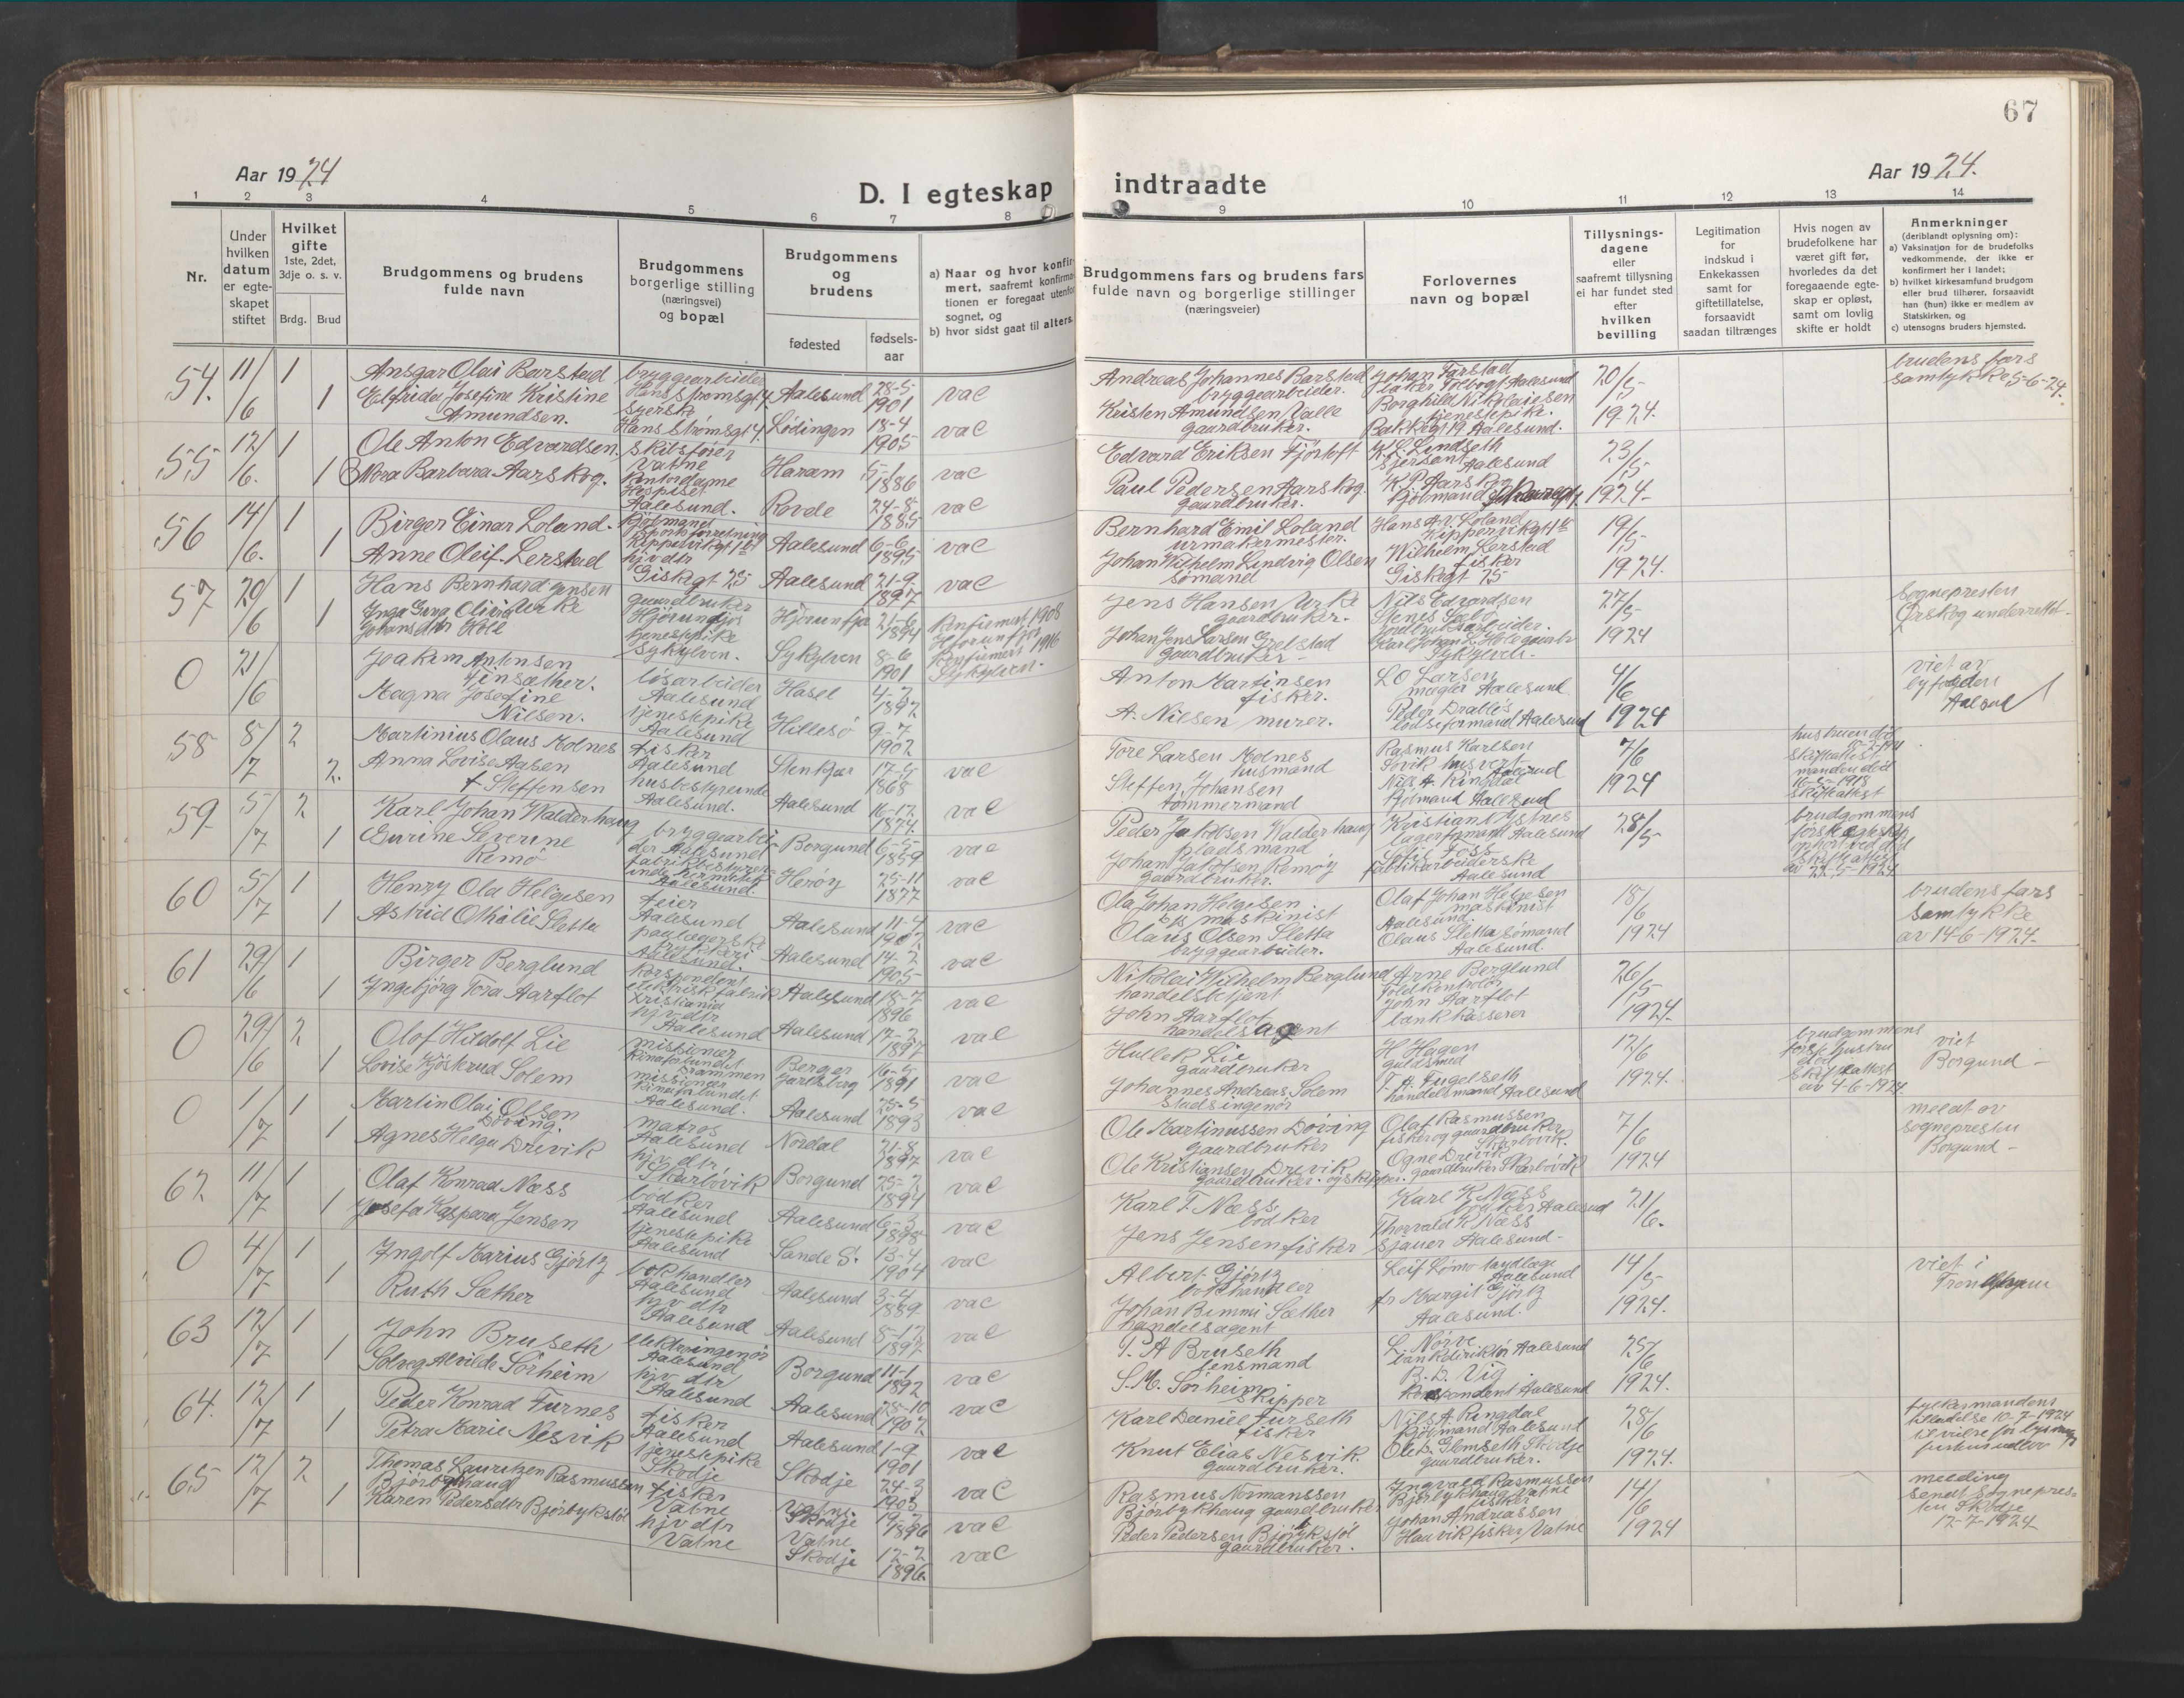 67
Aar 1924
D. I egteskap
indtraadte
Aar 1924.
1 2 3 4 5 6 7 8 9 10 11 12 13 14
Nr.
Under hvilken datum er egteskapet stiftet
Hvilket gifte
1ste, 2det, 3dje o. s. v.
Brdg. Brud
Brudgommens og brudens
fulde navn
Brudgommens
borgerlige stilling
(næringsvei)
og bopæl
Brudgommens
og
brudens
fødested
fødsels-
aar
a) Naar og hvor konfir-
mert, saafremt konfirma-
tionen er foregaat utenfor
sognet, og
b) hvor sidst gaat til alters.
Brudgommens fars og brudens fars
fulde navn og borgerlige stillinger
(næringsveier)
Forlovernes
navn og bopæl
Tillysnings-
dagene
eller
saafremt tillysning
ei har fundet sted
efter
hvilken
bevilling
Legitimation
for
indskud i
Enkekassen
samt for
giftetillatelse,
forsaavidt
saadan tiltrænges
Hvis nogen av
brudefolkene har
været gift før,
hvorledes da det
foregaaende egte-
skap er opløst,
samt om lovlig
skifte er holdt
Anmerkninger
(deriblandt oplysning om):
a) Vaksination for de brudefolks
vedkommende, der ikke er
konfirmert her i landet;
b) hvilket kirkesamfund brudgom
eller brud tilhører, forsaavidt
han (hun) ikke er medlem av
Statskirken, og
c) utensogns bruders hjemsted.
54. 11/6 1 Ansgar Olai Barstad bryggearbeider Hans Strømsgt 4. Aalesund 28-5 1901 vac
1 Elfrida Josefine Kristine Amundsen. syerske Hans Strømsgt 4. Lødingen 18-4 1905 vac
Andreas Johannes Barstad bryggearbeider. Johan Farstad Aalesund 20/5
Kristen Amundsen Valle gaardbruker. Borghild Nikolaisen tjenestepike. Bakkegt 19 Aalesund. 1924.
brudens fars samtykke 5-6-24.
55 12/6. 1 Ole Anton Edvardsen. skibsfører Vatne Haram 5-1 1886 vac
1 Nora Barbara Aarskog. kontordame Hospitset Aalesund. Rovde 24-8 1885 vac
Edvard Eriksen Fjørtoft K. L. Lindseth Aalesund 23/5
Paul Pedersen Aarskog. gaardbruker. K P Aarskog kjøbmand 1924-
56 14/6. 1 Birger Einar Loland. kjøbmand Sportsforretning Aalesund 6-6 1895 vac
1 Anne Oleif. Lerstad hjv dtr Giskegt 25 Aalesund 21-9 1897 vac
Bernhard Emil Loland urmakermester. Hans A. Loland 19/5
Johan Wilhelm Lindvig Olsen sømand Wilhelm Lerstad fisker Giskegt 25 1924.
57 20/6 1 Hans Bernhard Jensen Urke gaardbruker Hjørundfj. Hjørunfj. 21-6 1894 Konfirmert 1908 Hjorunfjor
1 Inga Olivia Johansdtr Hole tjenestepike Sykylven. Sykylven 8-6 1901 Konfirmert 1916 Sykylven.
Jens Hansen Urke gaardbruker. Nils Edvardsen 27/5
Johan Jens Larsen gaardbruker- Karl Johan L. Hole Sykylven. 1924
sognepresten Ørskog underrettet-
0 21/6 Joakim Antonsen Finsæther. løsarbeider Aalesund Hasel 4-2 1897
Magna Josefine Nilsen. tjenestepike Aalesund Hillesø 9-7 1902
Anton Martinsen fisker. L O Larsen megler Aalesund 4/6
A. Nilsen murer. Peder Drabløs lodsformand Aalesund 1924
viet av byfogden Aalesund
58 8/7 2 Martinius Olaus Molnes fisker Aalesund Stenkjær 17-5 1868 vac
2. Anna Lovise Aasen f Steffensen husbestyrerinde Aalesund. Aalesund 16-12 1874 vac
Tore Larsen Molnes husmand Rasmus Karlsen Sovik husvert Aalesund 7/6
Steffen Johansen tømmermand Nils A. Ringdal kjøbmand Aalesund 1924
hustruen død skifteattest manden død 1918 skifteattest
59 5/7 2 Karl Johan Walderhaug bryggearbeider Aalesund Borgund 6-5 1859 vac
1 Eurine Severine Remø Aalesund. Herøy 25-11 1877 vac
Peder Jakobsen Walderhaug pladsmand Kristian Ystnes lagerformand Aalesund 28/5
Johan Jakobsen Remøy gaardbruker. Foss fabrikarbeiderske Aalesund
brudgommens første egteskap ophørt ved død skifteattest av 22-5-1924
60 5/7 1 Henry Ola Helgesen feier Aalesund Aalesund 11-4 vac
1 Astrid Othilie Sletta Aalesund. Aalesund 14-2 1905 vac
Ola Johan Helgesen maskinist Olaf Johan Helgesen maskinist Aalesund. 18/6
Olaus Olsen Sletta bryggearbeider. Olaus Sletta sømand Aalesund. 1924
brudens fars samtykke av 14-6-1924.
61 29/6 1 Birger Berglund korspondent elektrisk fabrik Kristiania Aalesund 18-7 1896 vac
1 Ingebjørg Tora Aarflot hjv dtr Aalesund Aalesund 17-2 1897 vac
Nikolai Wilhelm Berglund handelsbetjent Arne Berglund toldkontrolør 26/5
John Aarflot handelsagent John Aarflot bankkasserer 1924.
0 29/6 2 Olof Hildolf Lie missionær Kinaforbundet Drammen Berger Jarlsberg 16-5 1891 vac
1 Lovise Kjøskrud Solem missionær Kinaforbundet Aalesund. Aalesund 25-5 1893 vac
Hullek Lie gaardbruker H Hagen guldsmed 12/6
Johannes Andreas Solem stadsingenør T. A. Fugelseth handelsmand Aalesund 1924.
brudgommens første hustru død skifteattest av 4-6-1924
viet Borgund-
0 1/7 1 Martin Olai Olsen Døving. matros Aalesund Nordal 21-8 1897 vac
1 Agnes Helga Drevik hjv dtr, Skarbøvik Borgund 25-2 1894 vac
Ole Martinussen Døving gaardbruker Olaf Rasmussen fisker og gaardbruker Skarbøvik. 7/6
Ole Kristiansen Drevik gaardbruker. og skipper. Ogne Drevik gaardbruker Skarbøvik 1924
meldt av sognepresten Borgund-
62 11/7 1 Olaf Konrad Næss bødker Aalesund Aalesund 6-3 1878 vac
1 Josefa Kaspara Jensen tjenestepike Aalesund Sande S. 13-4 1904 vac
Karl T. Næss. bødker Karl K. Næss bødker Aalesund 21/6.
Jens Jensen fisker Thorvald K Næss sjauer Aalesund-
0 4/7 1 Ingolf Marius Gjørtz bokhandler Aalesund Aalesund 3-4 1889. vac
1 Ruth Sæther hjv dtr Aalesund Aalesund 5-12 1897 vac
Albert Gjørtz bokhandler Leif Lømo tandlæge Aalesund 14/5
Johan Bimmi Sæther handelsagent fr Margit Gjørtz Aalesund. 1924.
viet i Trondhjem
63 12/7 1 John Bruseth elektroingenør Aalesund Borgund 11-1 1892 vac
1 Solveg Alvilde Sørheim hjv dtr Aalesund Aalesund 25-10 1902 vac
P. A Bruseth lensmand L. Nørve bankdirektør Aalesund 25/6
S. M. Sørheim skipper B. D. Vig korspondent Aalesund 1924.
64. 12/7 1 Peder Konrad Furnes fisker Aalesund Aalesund 1-9 1901 vac
1 Petra Marie Nesvik tjenestepike Skodje Skodje 24-3 1903 vac
Karl Daniel Furseth fisker Nils A. Ringdal kjøbmand Aalesund 28/6
Knut Elias Nesvik gaardbruker. Ole B. Glomseth Skodje gaardbruker. 1924.
fylkesmandens tilladelse 10-7-1924 til vielse før lysnings
65 12/7 2 Thomas Lauritzen Rasmussen Bjørlykhaug fisker Vatne Vatne Skodje 19-7 1896 vac
1 Karen Pedersdtr Bjørlykstøl hjv dtr Vatne Vatne Skodje 12-2 1896 vac
Rasmus Normanssen Bjørlykhaug gaardbruker Ingvald Rasmussen Bjørlykhaug Vatne fisker 14/6
Peder Pedersen Bjørlykstøl gaardbruker. Johan Andreassen Haavik fisker Vatne 1924
melding sendt sognepresten Skodje 12-7-1924